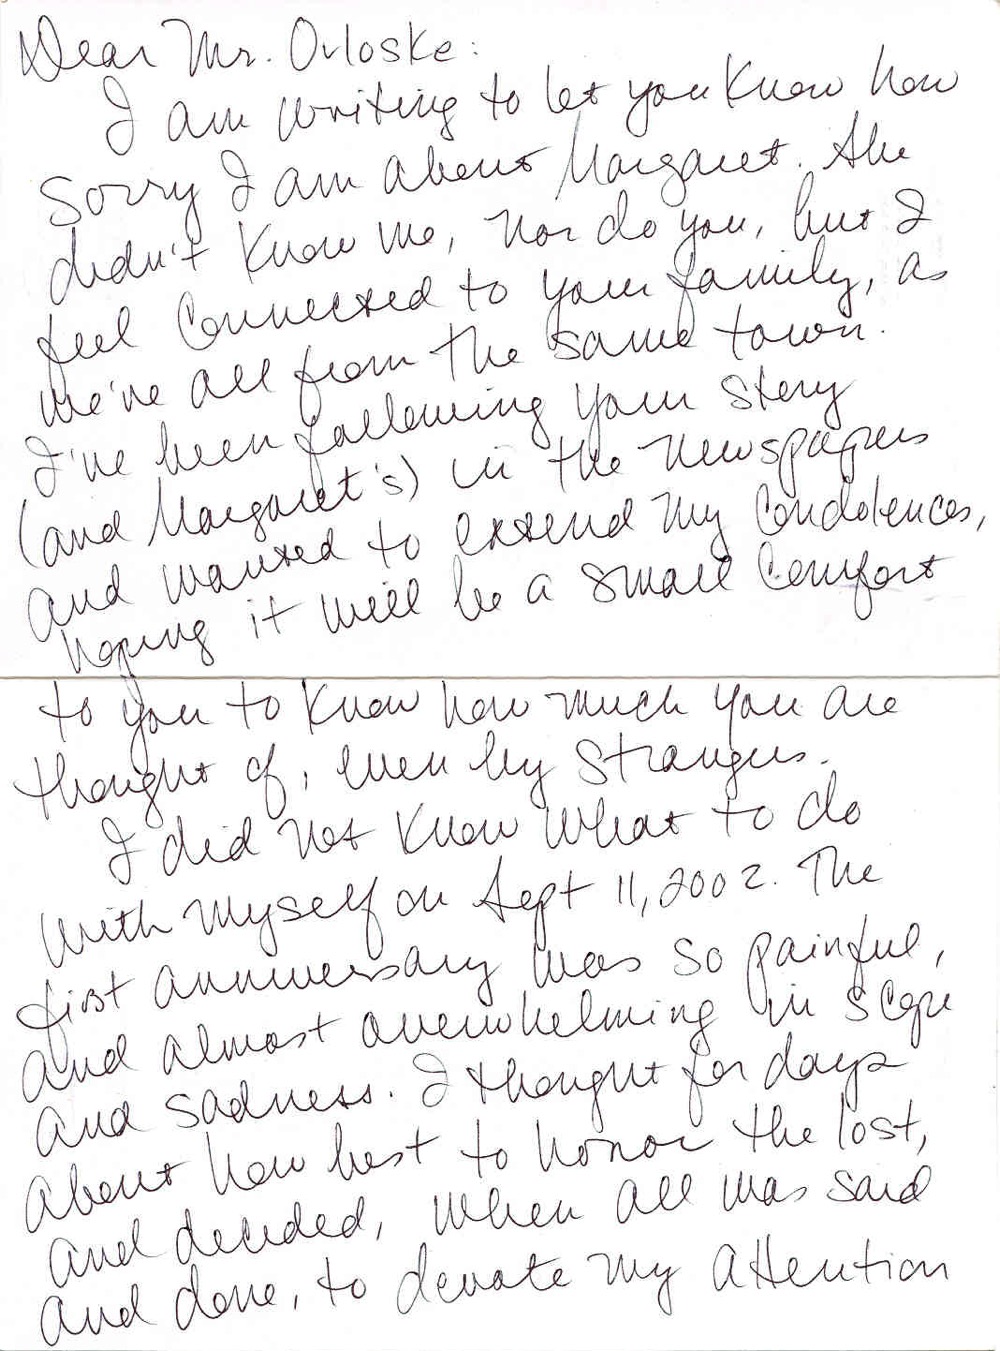 Dear Mr. Orloske:
I am writing to let you know how
sorry I am about Margaret. She
didn't know me, nor do you, but I
feel connected to your family, as
we're all from the same town.
I've been following your story
(and Margaret's) in the newspapers
and wanted to extend my condolences,
hoping it will be a small comfort
to you to know how much you are
thought of, even by strangers.
I did not know what to do
with myself on Sept 11, 2002. The
first anniversary was so painful,
and almost overwhelming in scope
and sadness. I thought for days
about how best to honor the lost,
and decided, when all was said
and done, to devote my attention